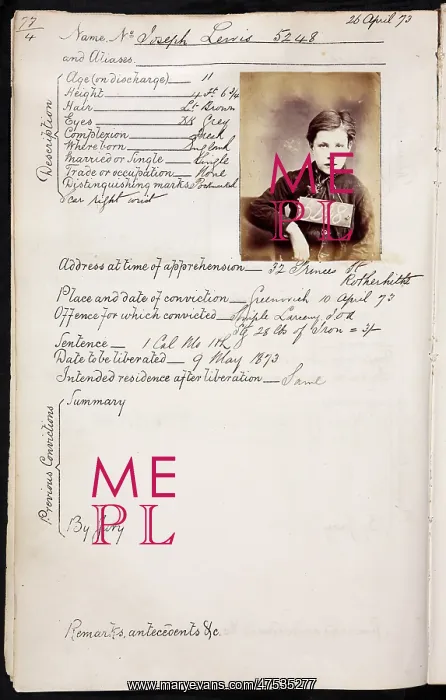 77
4
26 April 73
Name, No Joseph Lewis 5248
and Aliases
Description
Age (on discharge) 11
Height 4 ft 6 3/4
Hair Lt Brown
Eyes Dk Grey
Complexion Fresh
Where born England
Married or Single Single
Trade or occupation None
Distinguishing marks Pockmarked
Scar right wrist
Address at time of apprehension 32 Princes St
Rotherhithe
Place and date of conviction Greenwich 10 April 73
Offence for which convicted Simple Larceny
Stg 28 lbs of Iron = 3/-
Sentence 1 Cal Mo HL
Date to be liberated 9 May 1873
Intended residence after liberation Same
Previous Convictions
Summary
By Jury
Remarks, antecedents &c.
ME
PL
ME
PL
www.maryevans.com/47535277